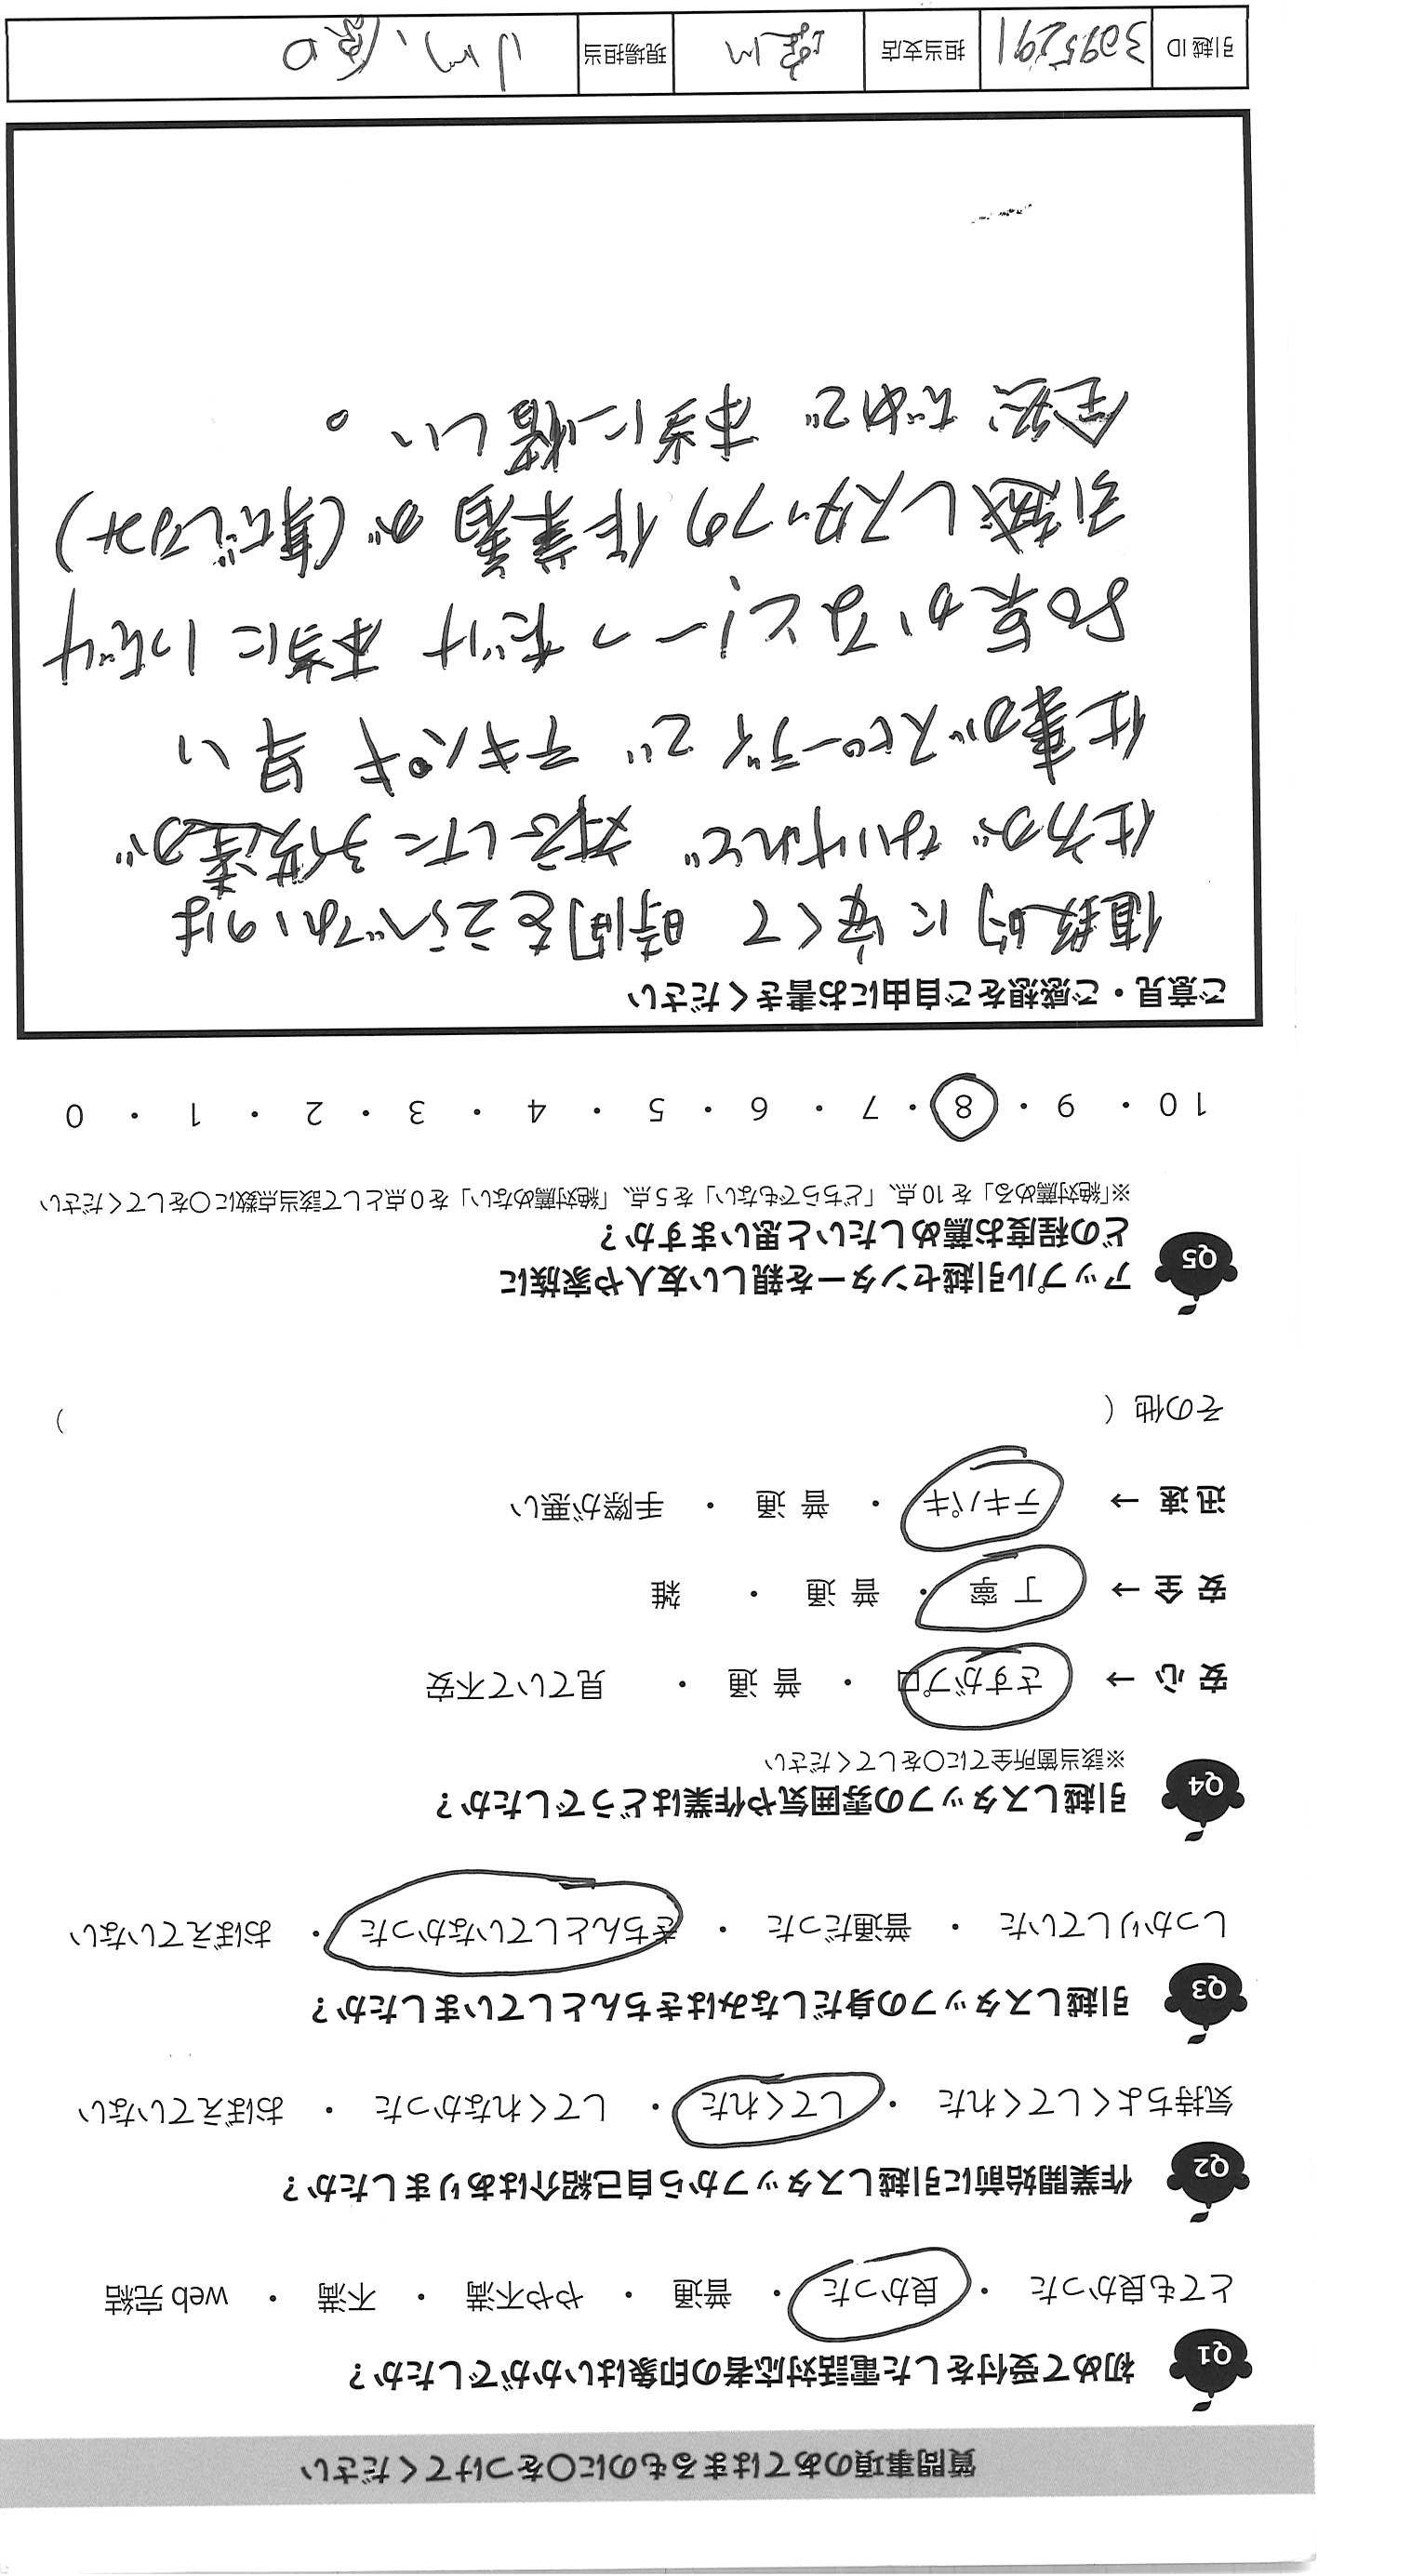 質問事項のあてはまるものに〇をつけてください
Q1 初めて受付をした電話対応者の印象はいかがでしたか?
とても良かった ・ 良かった ・ 普通 ・ やや不満 ・ 不満 ・ web 完結
Q2 作業開始前に引越しスタッフから自己紹介はありましたか?
気持ちよくしてくれた ・ してくれた ・ してくれなかった ・ おぼえていない
Q3 引越しスタッフの身だしなみはきちんとしていましたか?
しっかりしていた ・ 普通だった ・ きちんとしていなかった ・ おぼえていない
Q4 引越しスタッフの雰囲気や作業はどうでしたか?
※該当箇所全てに〇をしてください
安 心 → さすがプロ ・ 普 通 ・ 見ていて不安
安 全 → 丁 寧 ・ 普 通 ・ 雑
迅 速 → テキパキ ・ 普 通 ・ 手際が悪い
その他 ( )
Q5 アップル引越センターを親しい友人や家族に
どの程度お薦めしたいと思いますか?
※「絶対薦める」を 10 点、「どちらでもない」を 5 点、「絶対薦めない」を 0 点として該当点数に〇をしてください
10 ・ 9 ・ 8 ・ 7 ・ 6 ・ 5 ・ 4 ・ 3 ・ 2 ・ 1 ・ 0
ご意見・ご感想をご自由にお書きください
値段的に安くて 時間をえらべないのは
仕方がないけれど 対応した子達が
仕事がスピーディで テキパキ 早い
一つだけ 本当に1つだけ
引越しスタッフの作業着が
全然だめで 本当に惜しい。
引越 ID 3095291 担当支店 現場担当